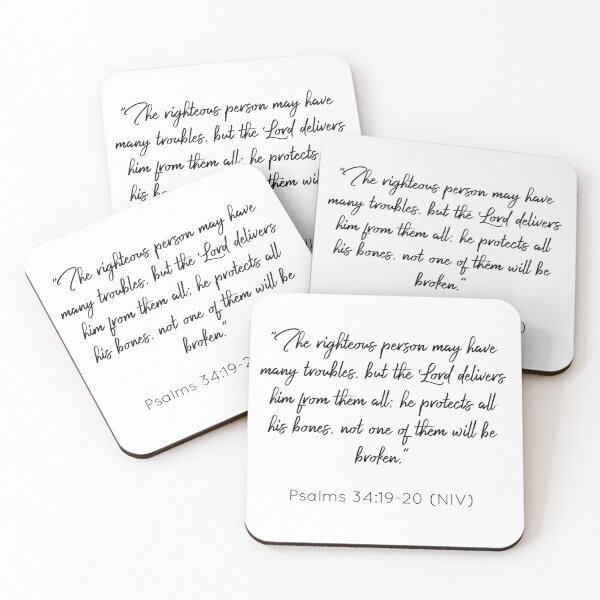 "The righteous person may have
many troubles, but the Lord delivers
him from them all; he protects
his
them
"The righteous person may have
many troubles, but the Lord delivers
him from them all; he protects all
his bones, not one of them will be
broken."
"The righteous person may have
many troubles, but the Lord delivers
him from them all; he protects all
his bones, not one of them will be
broken."
Psalms
"The righteous person may have
many troubles, but the Lord delivers
him from them all; he protects all
his bones, not one of them will be
broken."
Psalms 34:19-20 (NIV)